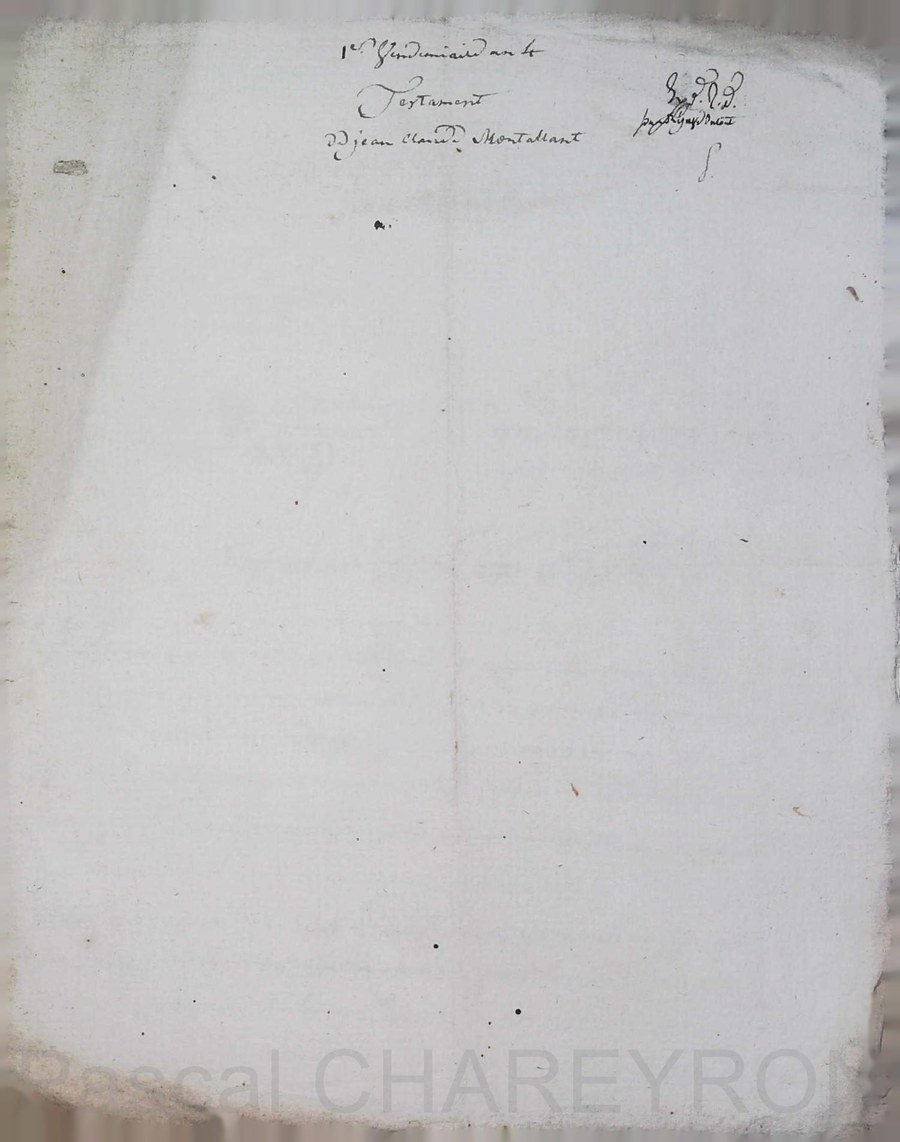 1er Vendemiaire an 4
Testament
de jean Claude Montallant
Pascal CHAREYRON